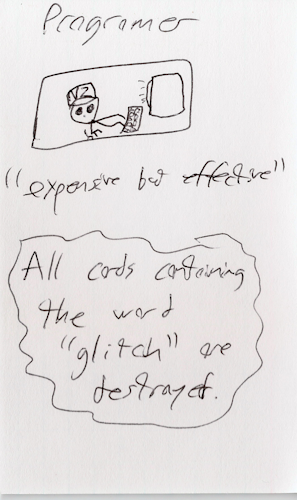 Programer
NZ
"expensive but effective"
All cards containing
the word
"glitch" are
destroyed.